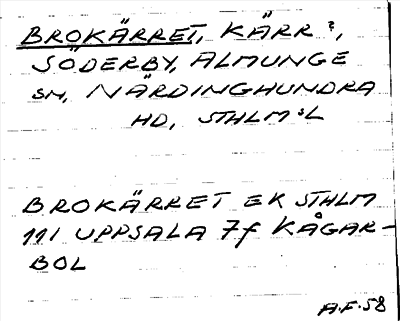 BROKÄRRET, KÄRR?,
SÖDERBY, ALMUNGE
SN, NÄRDINGHUNDRA
HD, STHLM:S L
BROKÄRRET EK STHLM
111 UPPSALA 7f KÅGAR-
BOL
A.F.58